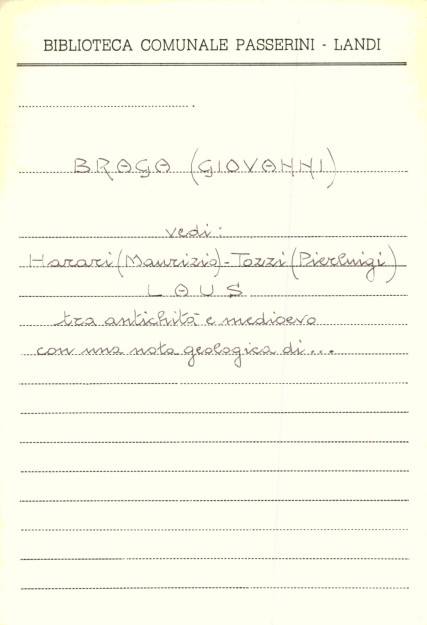 BIBLIOTECA COMUNALE PASSERINI - LANDI
BRAGA (GIOVANNI)
vedi:
Harari (Maurizio) - Tozzi (Pierluigi)
LAUS
tra antichità e medioevo
con una nota geologica di...